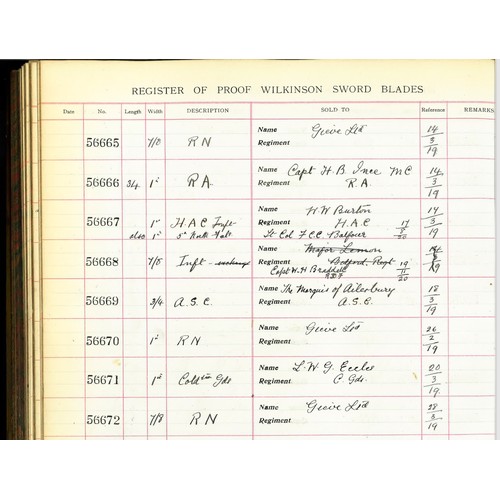 REGISTER OF PROOF WILKINSON SWORD BLADES
Date No. Length Width DESCRIPTION SOLD TO Reference REMARKS
Name Gieve Ltd
56665 7/8 R N Regiment 14/3/19
Name Capt H. B. Ince MC
56666 34 1" R.A. Regiment R.A. 14/3/19
Name H W Burton
56667 1" H A C Inft Regiment H.A.C 14/3/19
also 1" Lt Col F C C Balfour 17 20
Name Major Lemon
56668 7/8 Inft Regiment Bedford. Regt
Capt W. H. Braddell 19/11/20
R.D.F
Name The Marquis of Ailesbury
56669 3/4 A.S.C. Regiment A.S.C. 18/3/19
Name Gieve Ltd
56670 1" R N Regiment 26/2/19
Name L. W. G. Eccles
56671 1" Coldm Gds Regiment C Gds. 20/3/19
Name Gieve Ltd
56672 7/8 R N Regiment 28/3/19